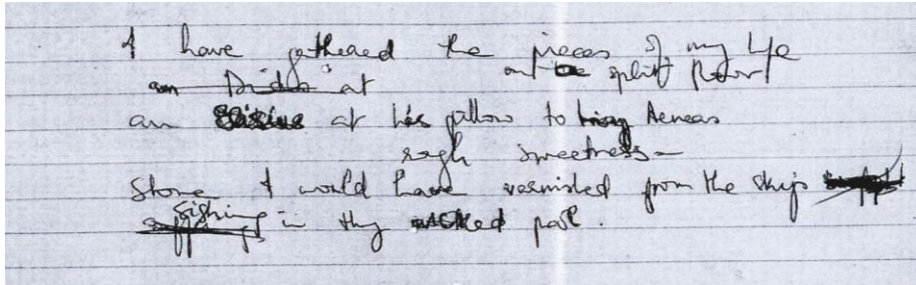 I have gathered the pieces of my life
am Dido at on the split
an at his pillow to Aeneas
rough sweetness
stone I would have vanished from the ship
sighing in thy past.